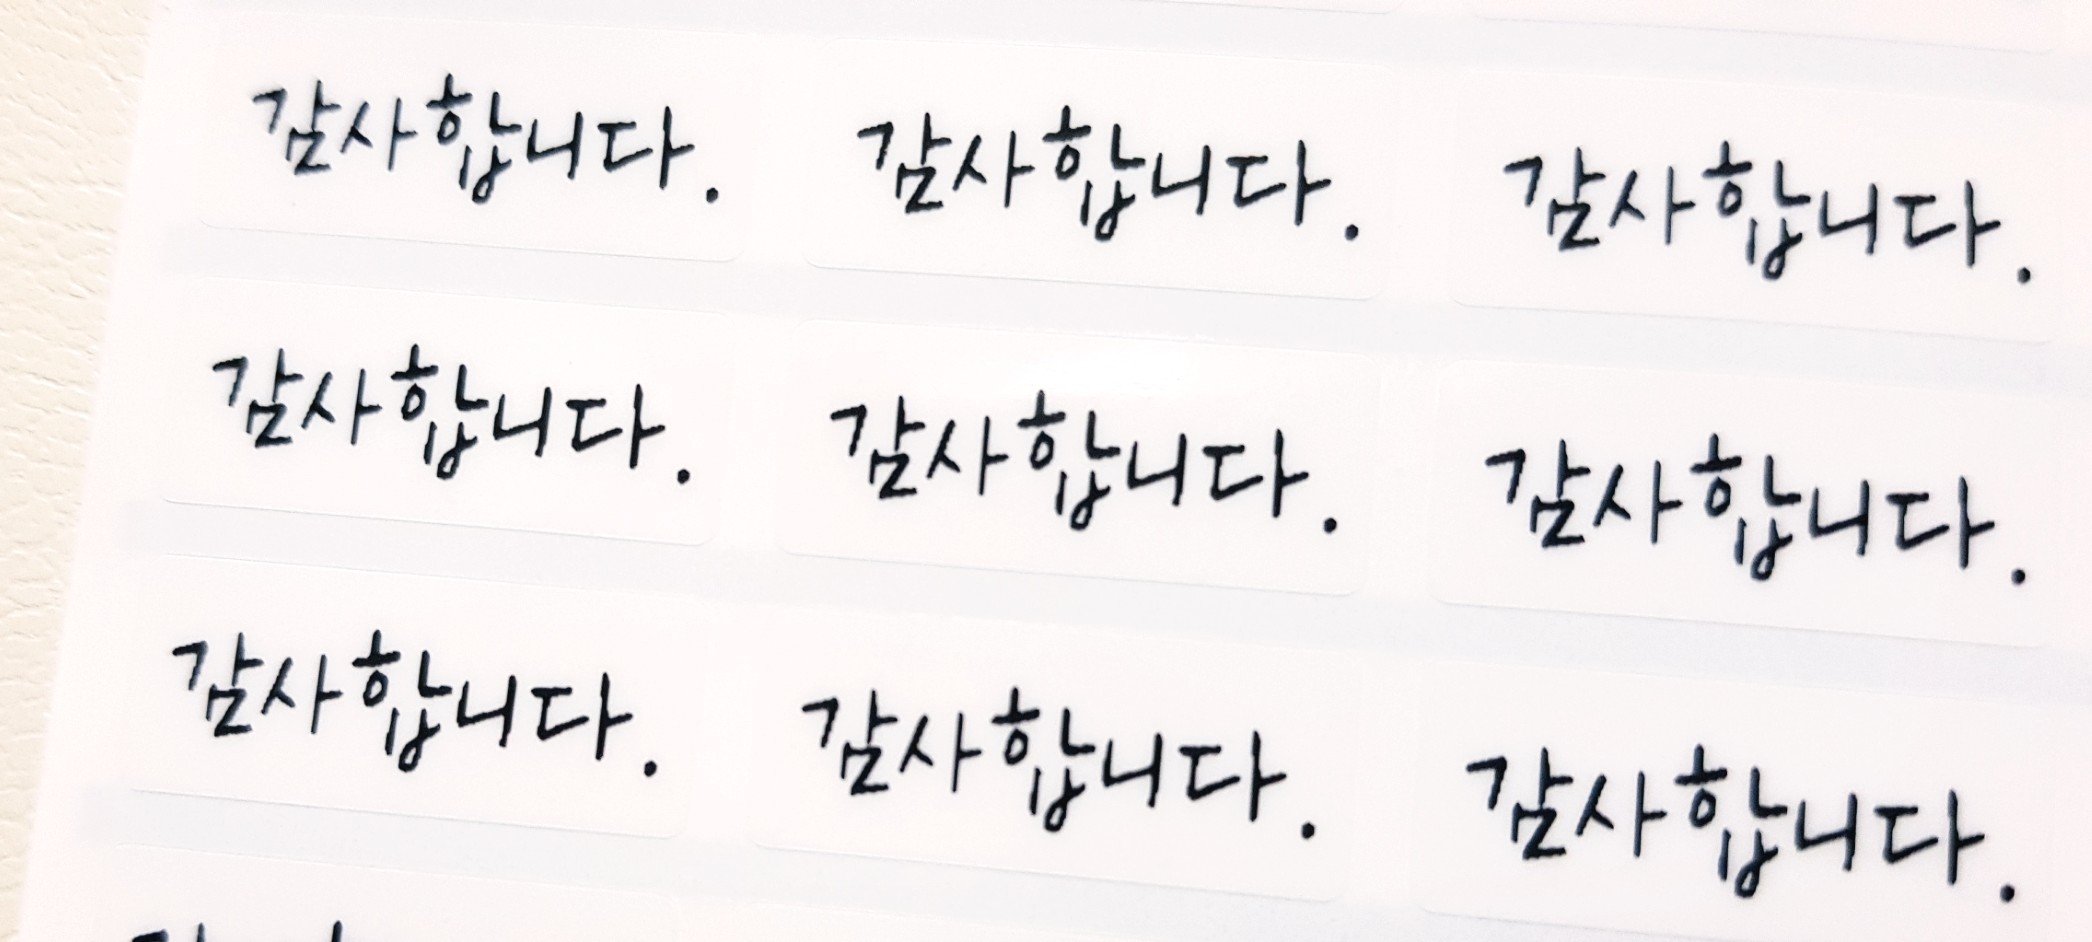 감사합니다. 감사합니다. 감사합니다.
감사합니다. 감사합니다. 감사합니다.
감사합니다. 감사합니다. 감사합니다.